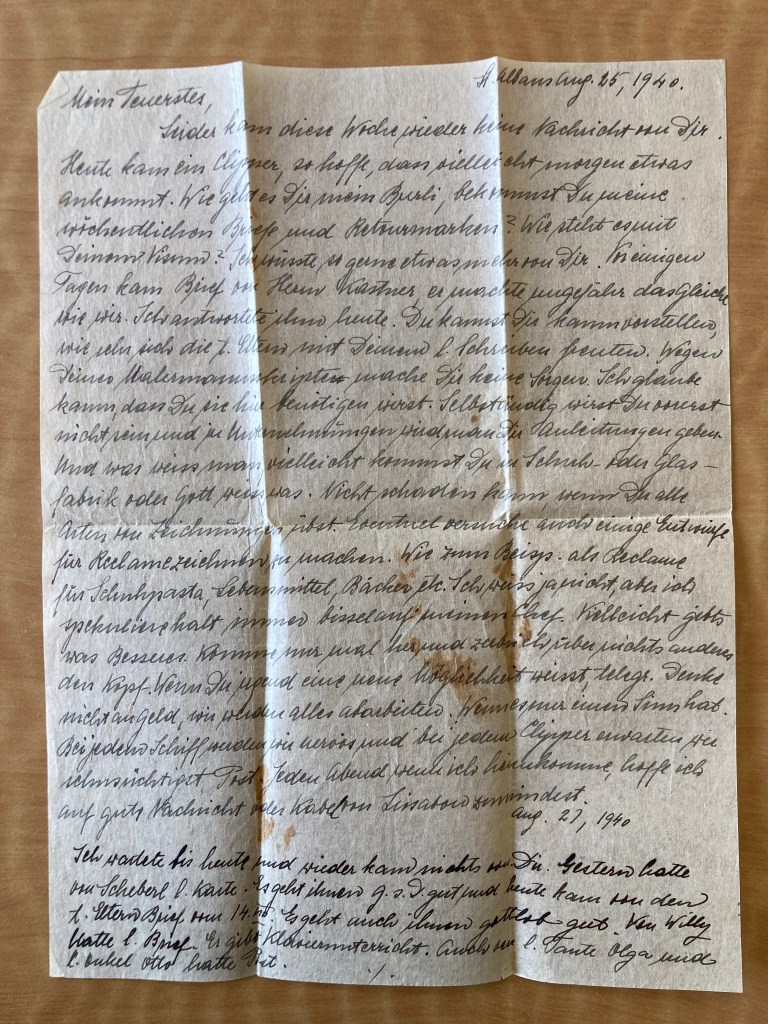 St. Albans Aug. 25, 1940.
Mein Teuerstes,
Leider kam diese Woche wieder keine Nachricht von Dir.
Heute kam ein Clipper, so hoffe, dass vielleicht morgen etwas
ankommt. Wie geht es Dir mein Burli, bekommst Du meine
wöchentlichen Briefe und Retourmarken? Wie steht es mit
Deinem Visum? Ich wüsste so gerne etwas mehr von Dir. Vor einigen
Tagen kam Brief von Herrn Kastner, er machte ungefähr das Gleiche
wie wir. Ich antwortete ihm heute. Du kannst Dir kaum vorstellen,
wie sehr sich die l. Eltern mit Deinem l. Schreiben freuten. Wegen
Deines mache Dir keine Sorgen. Ich glaube
kaum, dass Du sie hier benötigen wirst. Selbständig wirst Du vorerst
nicht sein und in Unternehmungen wird man Dir Anleitungen geben.
Und was weiss man vielleicht kommst Du in Schuh- oder Glas-
fabrik oder Gott weiss was. Nicht schaden kann, wenn Du alle
Arten von Zeichnungen übst. Eventuel versuche auch einige Entwürfe
für Reclamezeichnen zu machen. Wie zum Beisp. als Reclame
für Schuhpasta, Lebensmittel, Bäcker etc. Ich weiss ja nicht, aber ich
spekuliere halt immer bissel auf meinen Chef. Vielleicht gibts
was Besseres. Komme nur mal her und zerbrich über nichts anderes
den Kopf. Wenn Du irgend eine neue Möglichkeit weisst, telegr. Denke
nicht an Geld, wir werden alles abarbeiten. Wenn es nur einen Sinn hat.
Bei jedem Schiff werden wir nervös und bei jedem Clipper erwarten wir
sehnsüchtigst Post. Jeden Abend, wenn ich heimkomme, hoffe ich
auf gute Nachricht oder Kabel von Lissabon zumindest.
Aug. 27, 1940
Ich wartete bis heute und wieder kam nichts von Dir. Gestern hatte
von Scheberl l. Karte. Es geht ihnen g. s. D. gut und heute kam von den
l. Eltern Brief vom 14. Es geht auch ihnen gottlob gut. Von Willy
hatte l. Brief. Er gibt Klavierunterricht. Auch von l. Tante Olga und
l. Onkel Otto hatte Post.
./.